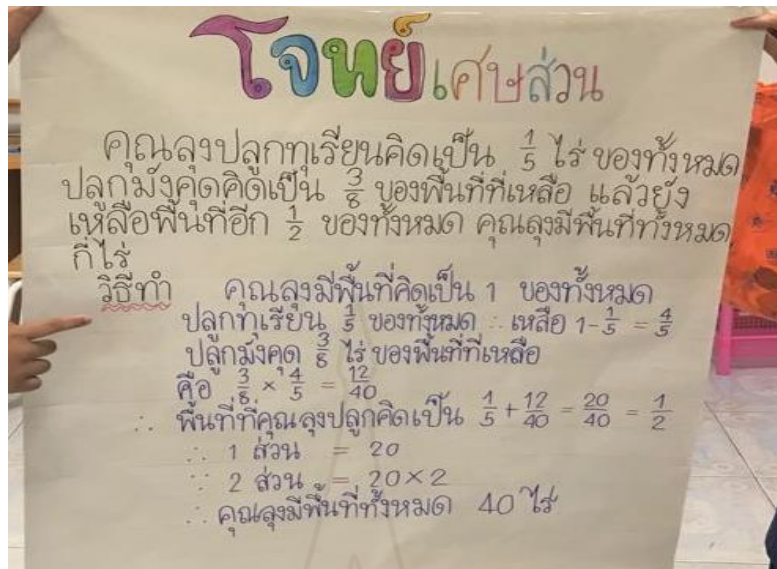 โจทย์เศษส่วน
คุณลุงปลูกทุเรียนคิดเป็น 1/5 ไร่ ของทั้งหมด
ปลูกมังคุดคิดเป็น 3/8 ของพื้นที่ที่เหลือ แล้วยัง
เหลือพื้นที่อีก 1/2 ของทั้งหมด คุณลุงมีพื้นที่ทั้งหมด
กี่ไร่
วิธีทำ คุณลุงมีพื้นที่คิดเป็น 1 ของทั้งหมด
ปลูกทุเรียน 1/5 ของทั้งหมด ∴ เหลือ 1-1/5 = 4/5
ปลูกมังคุด 3/8 ไร่ ของพื้นที่ที่เหลือ
คือ 3/8 × 4/5 = 12/40
∴ พื้นที่ที่คุณลุงปลูกคิดเป็น 1/5 + 12/40 = 20/40 = 1/2
∴ 1 ส่วน = 20
∵ 2 ส่วน = 20×2
∴ คุณลุงมีพื้นที่ทั้งหมด 40 ไร่